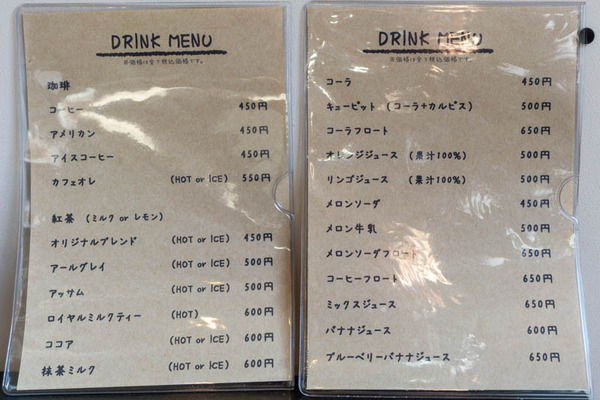 DRINK MENU
※価格は全て税込価格です。
珈琲
コーヒー 450円
アメリカン 450円
アイスコーヒー 450円
カフェオレ (HOT or ICE) 550円
紅茶 (ミルク or レモン)
オリジナルブレンド (HOT or ICE) 450円
アールグレイ (HOT or ICE) 500円
アッサム (HOT or ICE) 500円
ロイヤルミルクティー (HOT) 600円
ココア (HOT or ICE) 600円
抹茶ミルク (HOT or ICE) 600円
DRINK MENU
※価格は全て税込価格です。
コーラ 450円
キューピット (コーラ+カルピス) 500円
コーラフロート 650円
オレンジジュース (果汁100%) 500円
リンゴジュース (果汁100%) 500円
メロンソーダ 450円
メロン牛乳 500円
メロンソーダフロート 650円
コーヒーフロート 650円
ミックスジュース 650円
バナナジュース 600円
ブルーベリーバナナジュース 650円